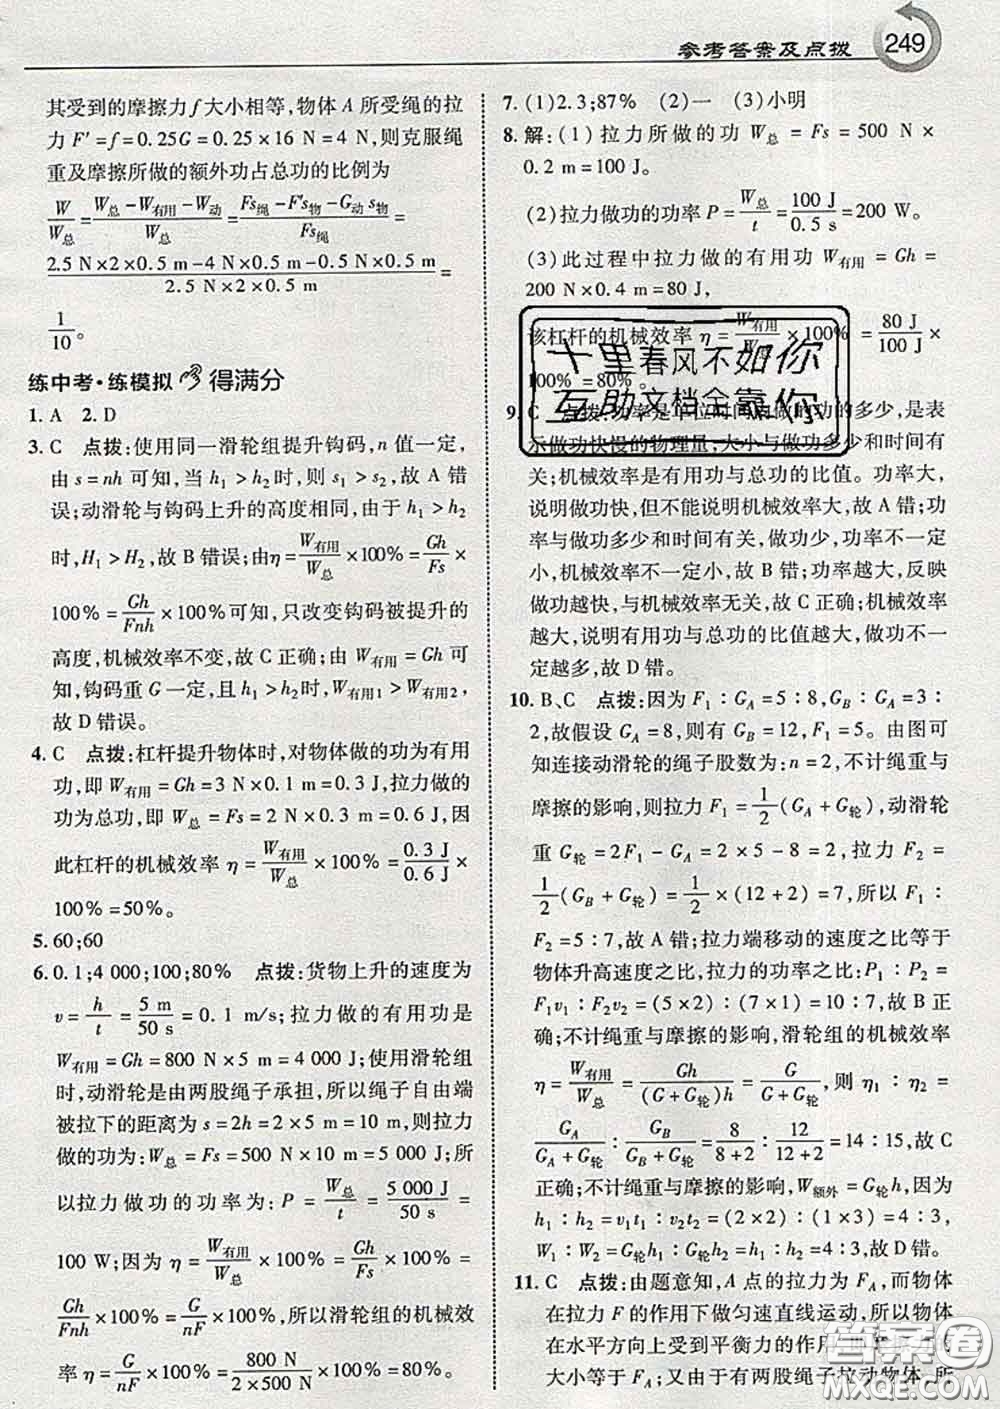 参考答案及点拨
249
其受到的摩擦力 f 大小相等，物体 A 所受绳的拉
力 F′=f=0.25G=0.25×16 N=4 N，则克服绳
重及摩擦所做的额外功占总功的比例为
W/W总 = (W总-W有用-W动)/W总 = (Fs绳-F′s物-G动s物)/Fs绳 =
(2.5 N×2×0.5 m-4 N×0.5 m-0.5 N×0.5 m)/(2.5 N×2×0.5 m) =
1/10。
练中考·练模拟 得满分
1. A 2. D
3. C 点拨：使用同一滑轮组提升钩码，n 值一定，
由 s=nh 可知，当 h₁>h₂ 时，则 s₁>s₂，故 A 错
误；动滑轮与钩码上升的高度相同，由于 h₁>h₂
时，H₁>H₂，故 B 错误；由 η=W有用/W总×100%=Gh/Fs×
100%=Gh/Fnh×100%可知，只改变钩码被提升的
高度，机械效率不变，故 C 正确；由 W有用=Gh 可
知，钩码重 G 一定，且 h₁>h₂时，W有用1>W有用2，
故 D 错误。
4. C 点拨：杠杆提升物体时，对物体做的功为有用
功，即 W有用=Gh=3 N×0.1 m=0.3 J，拉力做的
功为总功，即 W总=Fs=2 N×0.3 m=0.6 J，因
此杠杆的机械效率 η=W有用/W总×100%=0.3 J/0.6 J×
100%=50%。
5. 60；60
6. 0.1；4 000；100；80% 点拨：货物上升的速度为
v=h/t=5 m/50 s=0.1 m/s；拉力做的有用功是
W有用=Gh=800 N×5 m=4 000 J；使用滑轮组
时，动滑轮是由两股绳子承担，所以绳子自由端
被拉下的距离为 s=2h=2×5 m=10 m，则拉力
做的功为：W总=Fs=500 N×10 m=5 000 J；所
以拉力做功的功率为：P=W总/t=5 000 J/50 s=
100 W；因为 η=W有用/W总×100%=Gh/Fs×100%=
Gh/Fnh×100%=G/nF×100%，所以滑轮组的机械效
率 η=G/nF×100%=800 N/(2×500 N)×100%=80%。
7. (1)2.3；87% (2)一 (3)小明
8. 解：(1)拉力所做的功 W总=Fs=500 N×
0.2 m=100 J。
(2)拉力做功的功率 P=W总/t=100 J/0.5 s=200 W。
(3)此过程中拉力做的有用功 W有用=Gh=
200 N×0.4 m=80 J，
该杠杆的机械效率 η=W有用/W总×100%=80 J/100 J×
100%=80%。
十里春风不如你
互助文档全靠你
9. C 点拨：功率是单位时间内做的功的多少，是表
示做功快慢的物理量，大小与做功多少和时间有
关；机械效率是有用功与总功的比值。功率大，
说明做功快，但不能说明机械效率大，故 A 错；功
率与做功多少和时间有关，做功少，功率不一定
小，机械效率不一定小，故 B 错；功率越大，反映
做功越快，与机械效率无关，故 C 正确；机械效率
越大，说明有用功与总功的比值越大，做功不一
定越多，故 D 错。
10. B、C 点拨：因为 F₁∶G_A=5∶8，G_B∶G_A=3∶
2，故假设 G_A=8，则有 G_B=12，F₁=5。由图可
知连接动滑轮的绳子股数为：n=2，不计绳重与
摩擦的影响，则拉力 F₁=1/2(G_A+G轮)，动滑轮
重 G轮=2F₁-G_A=2×5-8=2，拉力 F₂=
1/2(G_B+G轮)=1/2×(12+2)=7，所以 F₁∶
F₂=5∶7，故 A 错；拉力端移动的速度之比等于
物体升高速度之比，拉力的功率之比：P₁∶P₂=
F₁v₁∶F₂v₂=(5×2)∶(7×1)=10∶7，故 B 正
确；不计绳重与摩擦的影响，滑轮组的机械效率
η=W有用/W总=Gh/(G+G轮)h=G/(G+G轮)，则 η₁∶η₂=
G_A/(G_A+G轮)∶G_B/(G_B+G轮)=8/(8+2)∶12/(12+2)=14∶15，故 C
正确；不计绳重与摩擦的影响，W额外=G轮h，因为
h₁∶h₂=v₁t₁∶v₂t₂=(2×2)∶(1×3)=4∶3，
W₁∶W₂=G轮h₁∶G轮h₂=h₁∶h₂=4∶3，故 D 错。
11. C 点拨：由题意知，A 点的拉力为 F_A，而物体
在拉力 F 的作用下做匀速直线运动，所以物体
在水平方向上受到平衡力的作用，
大小等于 F_A；又由于有两段绳子拉动物体，所
答案圈
MXQE.COM